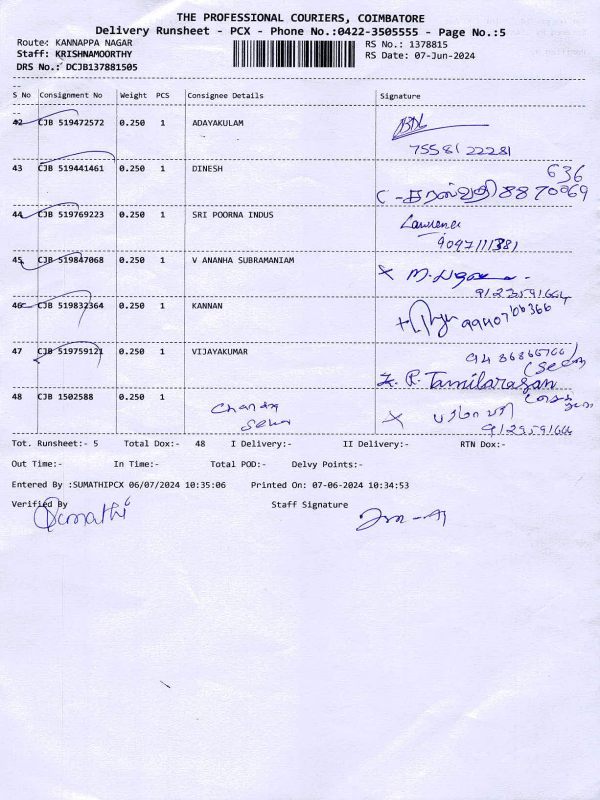 THE PROFESSIONAL COURIERS, COIMBATORE
Delivery Runsheet - PCX - Phone No.:0422-3505555 - Page No.:5
Route: KANNAPPA NAGAR RS No.: 1378815
Staff: KRISHNAMOORTHY RS Date: 07-Jun-2024
DRS No.: DCJB137881505
S No Consignment No Weight PCS Consignee Details Signature
42 CJB 519472572 0.250 1 ADAYAKULAM
7558122281
43 CJB 519441461 0.250 1 DINESH 636
8870069
44 CJB 519769223 0.250 1 SRI POORNA INDUS
45 CJB 519847068 0.250 1 V ANANHA SUBRAMANIAM
46 CJB 519832364 0.250 1 KANNAN
47 CJB 519759121 0.250 1 VIJAYAKUMAR
P. Tamilarasan
48 CJB 1502588 0.250 1
Tot. Runsheet:- 5 Total Dox:- 48 I Delivery:- II Delivery:- RTN Dox:-
Out Time:- In Time:- Total POD:- Delvy Points:-
Entered By :SUMATHIPCX 06/07/2024 10:35:06 Printed On: 07-06-2024 10:34:53
Verified By Staff Signature
Sumathi